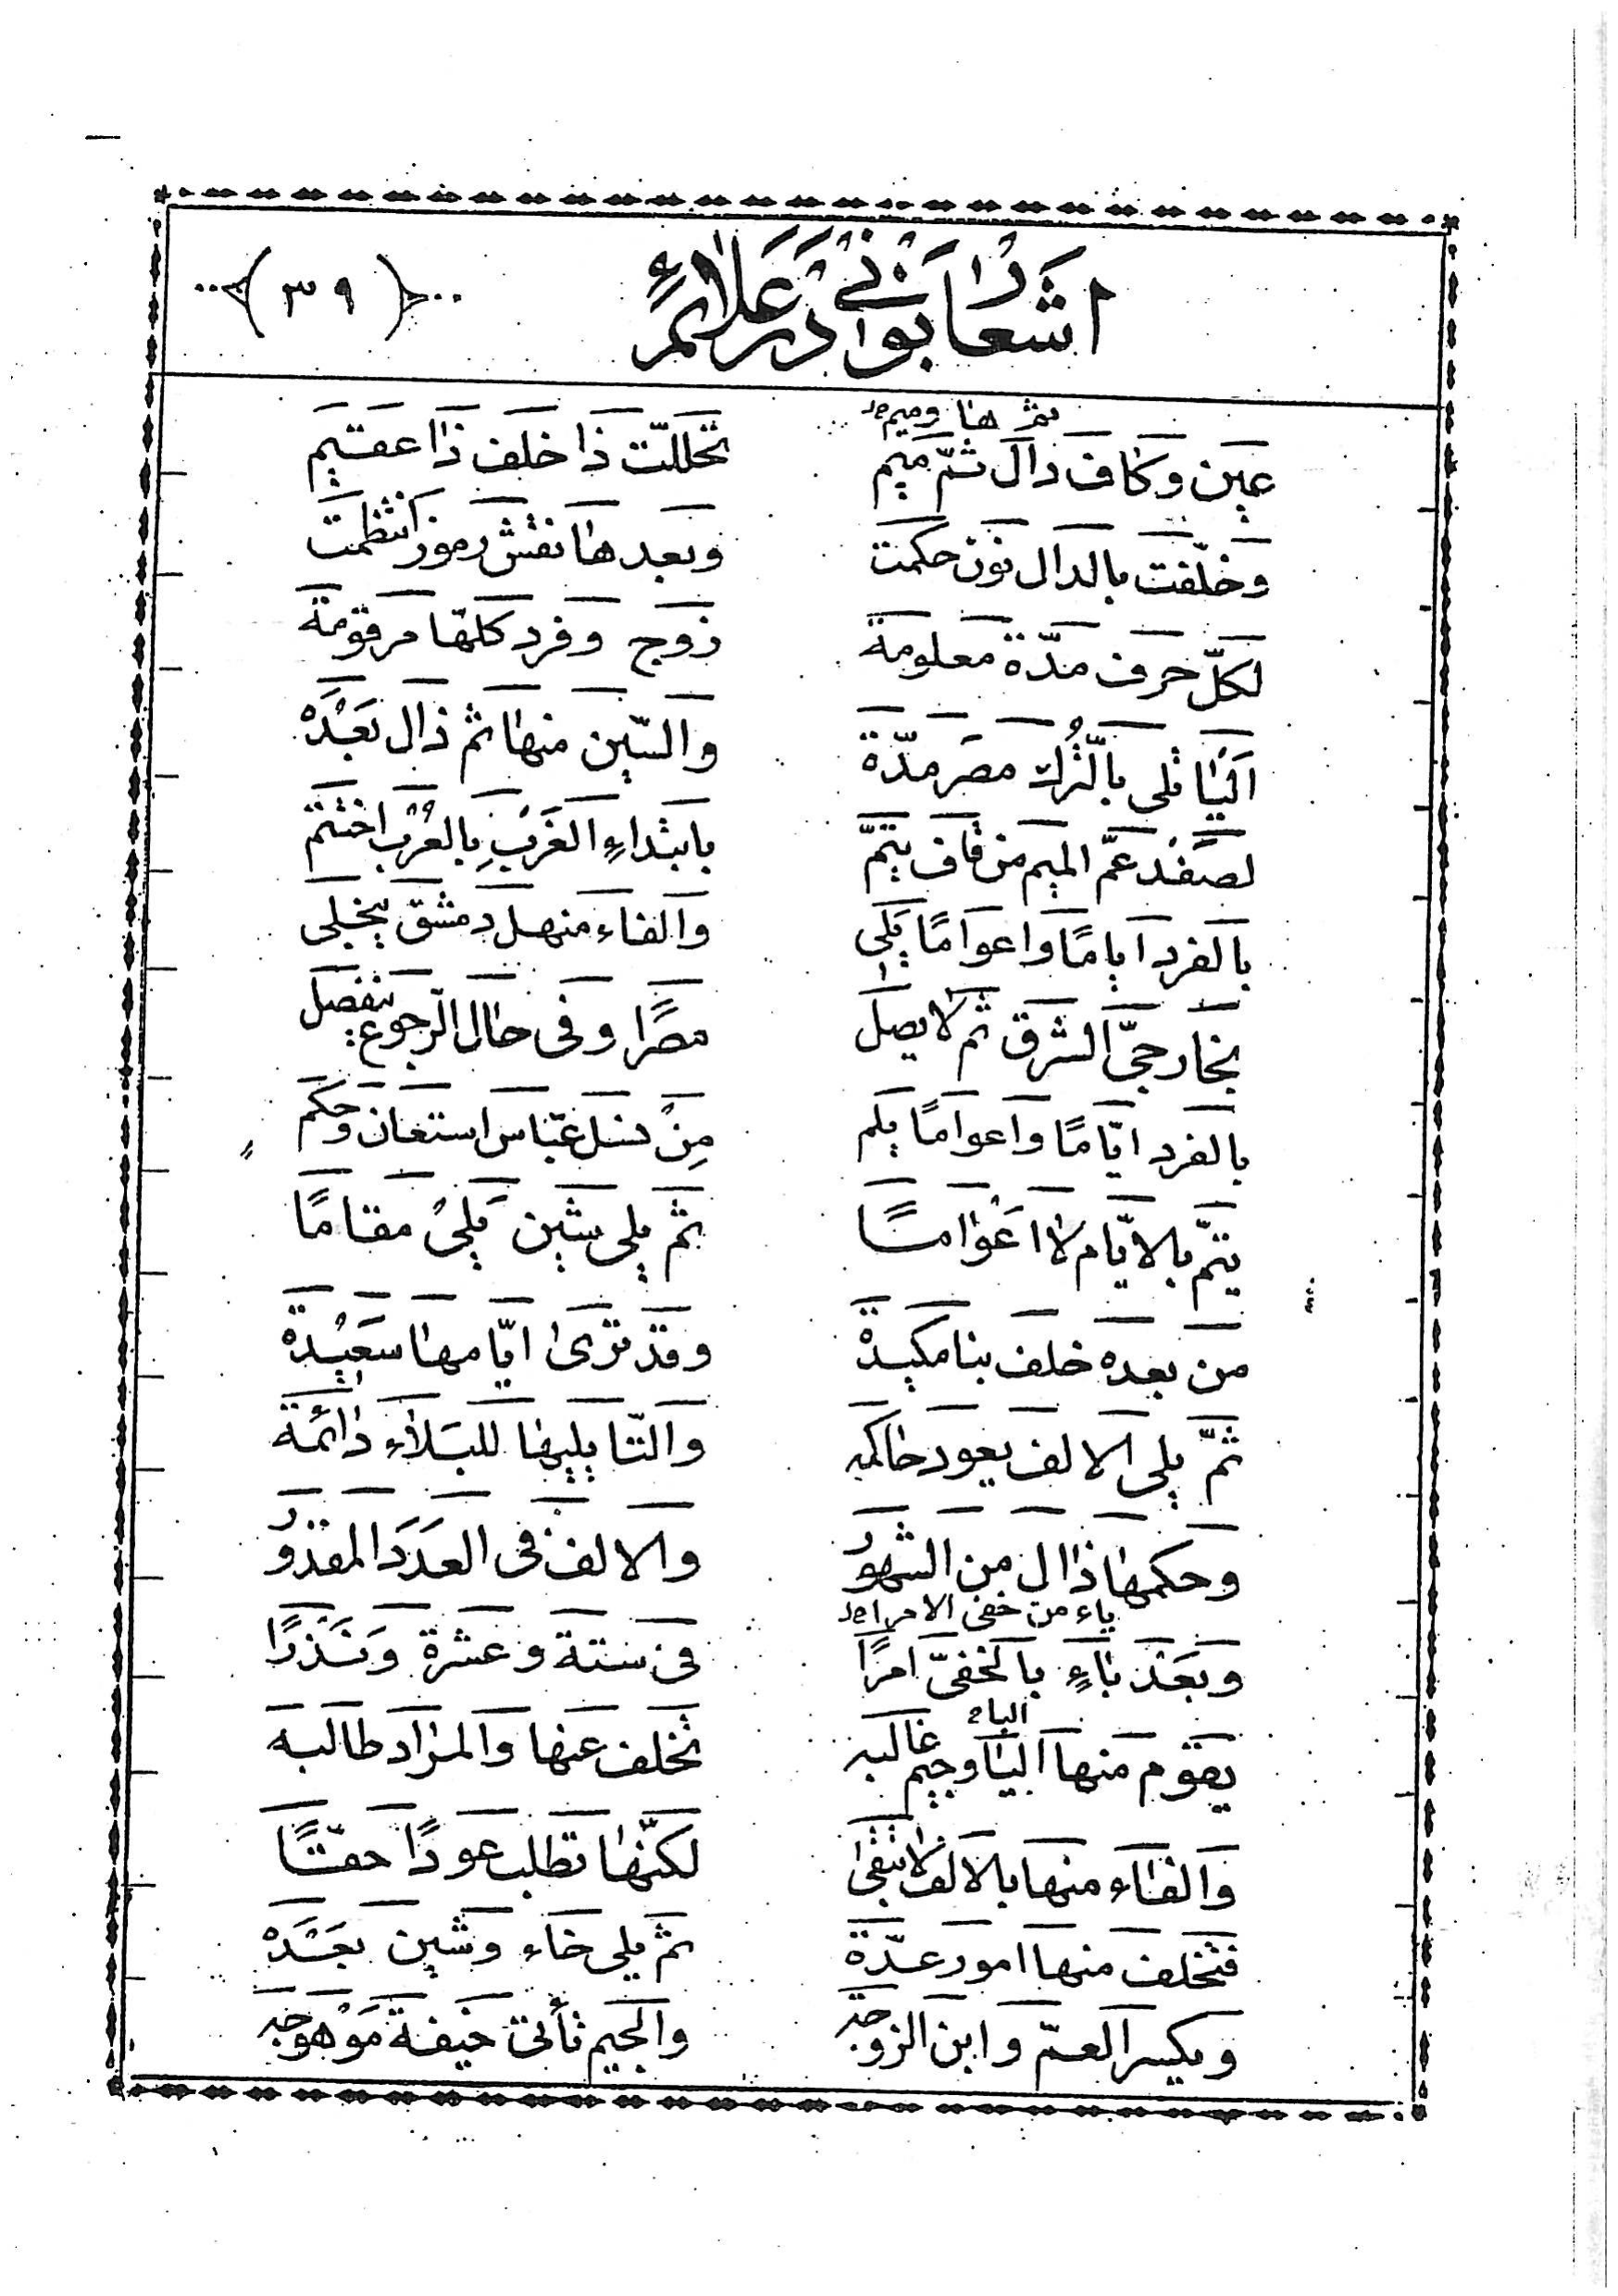 اشعار بوانی در علائم
(٣٩)
ثم ها وميم صد
عين وكاف دال ثمّ ميم تخللّت ذا خلف ذا عقيم
وخلّفت بالدال نون حكمت وبعدها نقش رموز انتظمت
لكلّ حرف مدّة معلومة زوج وفرد كلها مرقومة
اليا تلى بالتّرك مصر مدّة والسّين منها ثم ذال بعده
لصفد عمّ الميم من قاف يتمّ بابتداءِ الغرب بالعرب اختتم
بالفرد اياما واعواما يلي والفاء منهل دمشق ينجلى
بخارجىّ الشرق ثم لا يصل مصرًا وفى حال الرجوع ينفصل
بالفرد ايّامًا واعوامًا يلم مِن نسل عبّاس استعان وحكم
يتمّ بالايّام لا اعوامًا ثم يلى شين يلي مقامًا
من بعده خلف بنا مكيدة وقد ترى ايّامها سعيدة
ثمّ يلى الالف يعود حاكمه والتّا يليها للبلاء دائمة
وحكمها ذال من الشهور والالف فى العدد المقدور
ياء من خفى الامرا صد
وبعد باءٍ بالخفىّ امرًا فى ستة وعشرة ونذرًا
الباء
يقوم منها اليا وجيم غالبه تخلف عنها والمراد طالبه
والفاء منها بالالف لا تبقى لكنّها تطلب عودًا حقّا
فتخلف منها امور عدّة ثم يلى خاء وشين بعده
ويكسر العمّ وابن الزوجة والجيم تأتى خيفة موهوجة